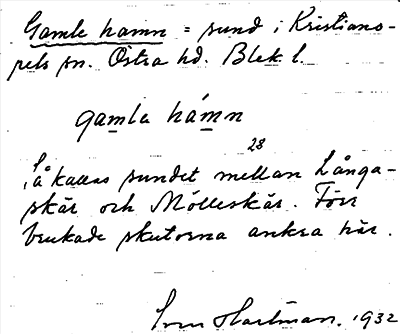 Gamle hamn = sund i Kristiano-
pels sn. Östra hd. Blek. l.
gamla hámn
28
Så kallas sundet mellan Långa-
skär och Mölleskär. Förr
brukade skutorna ankra här.
Sven Hartman. 1932